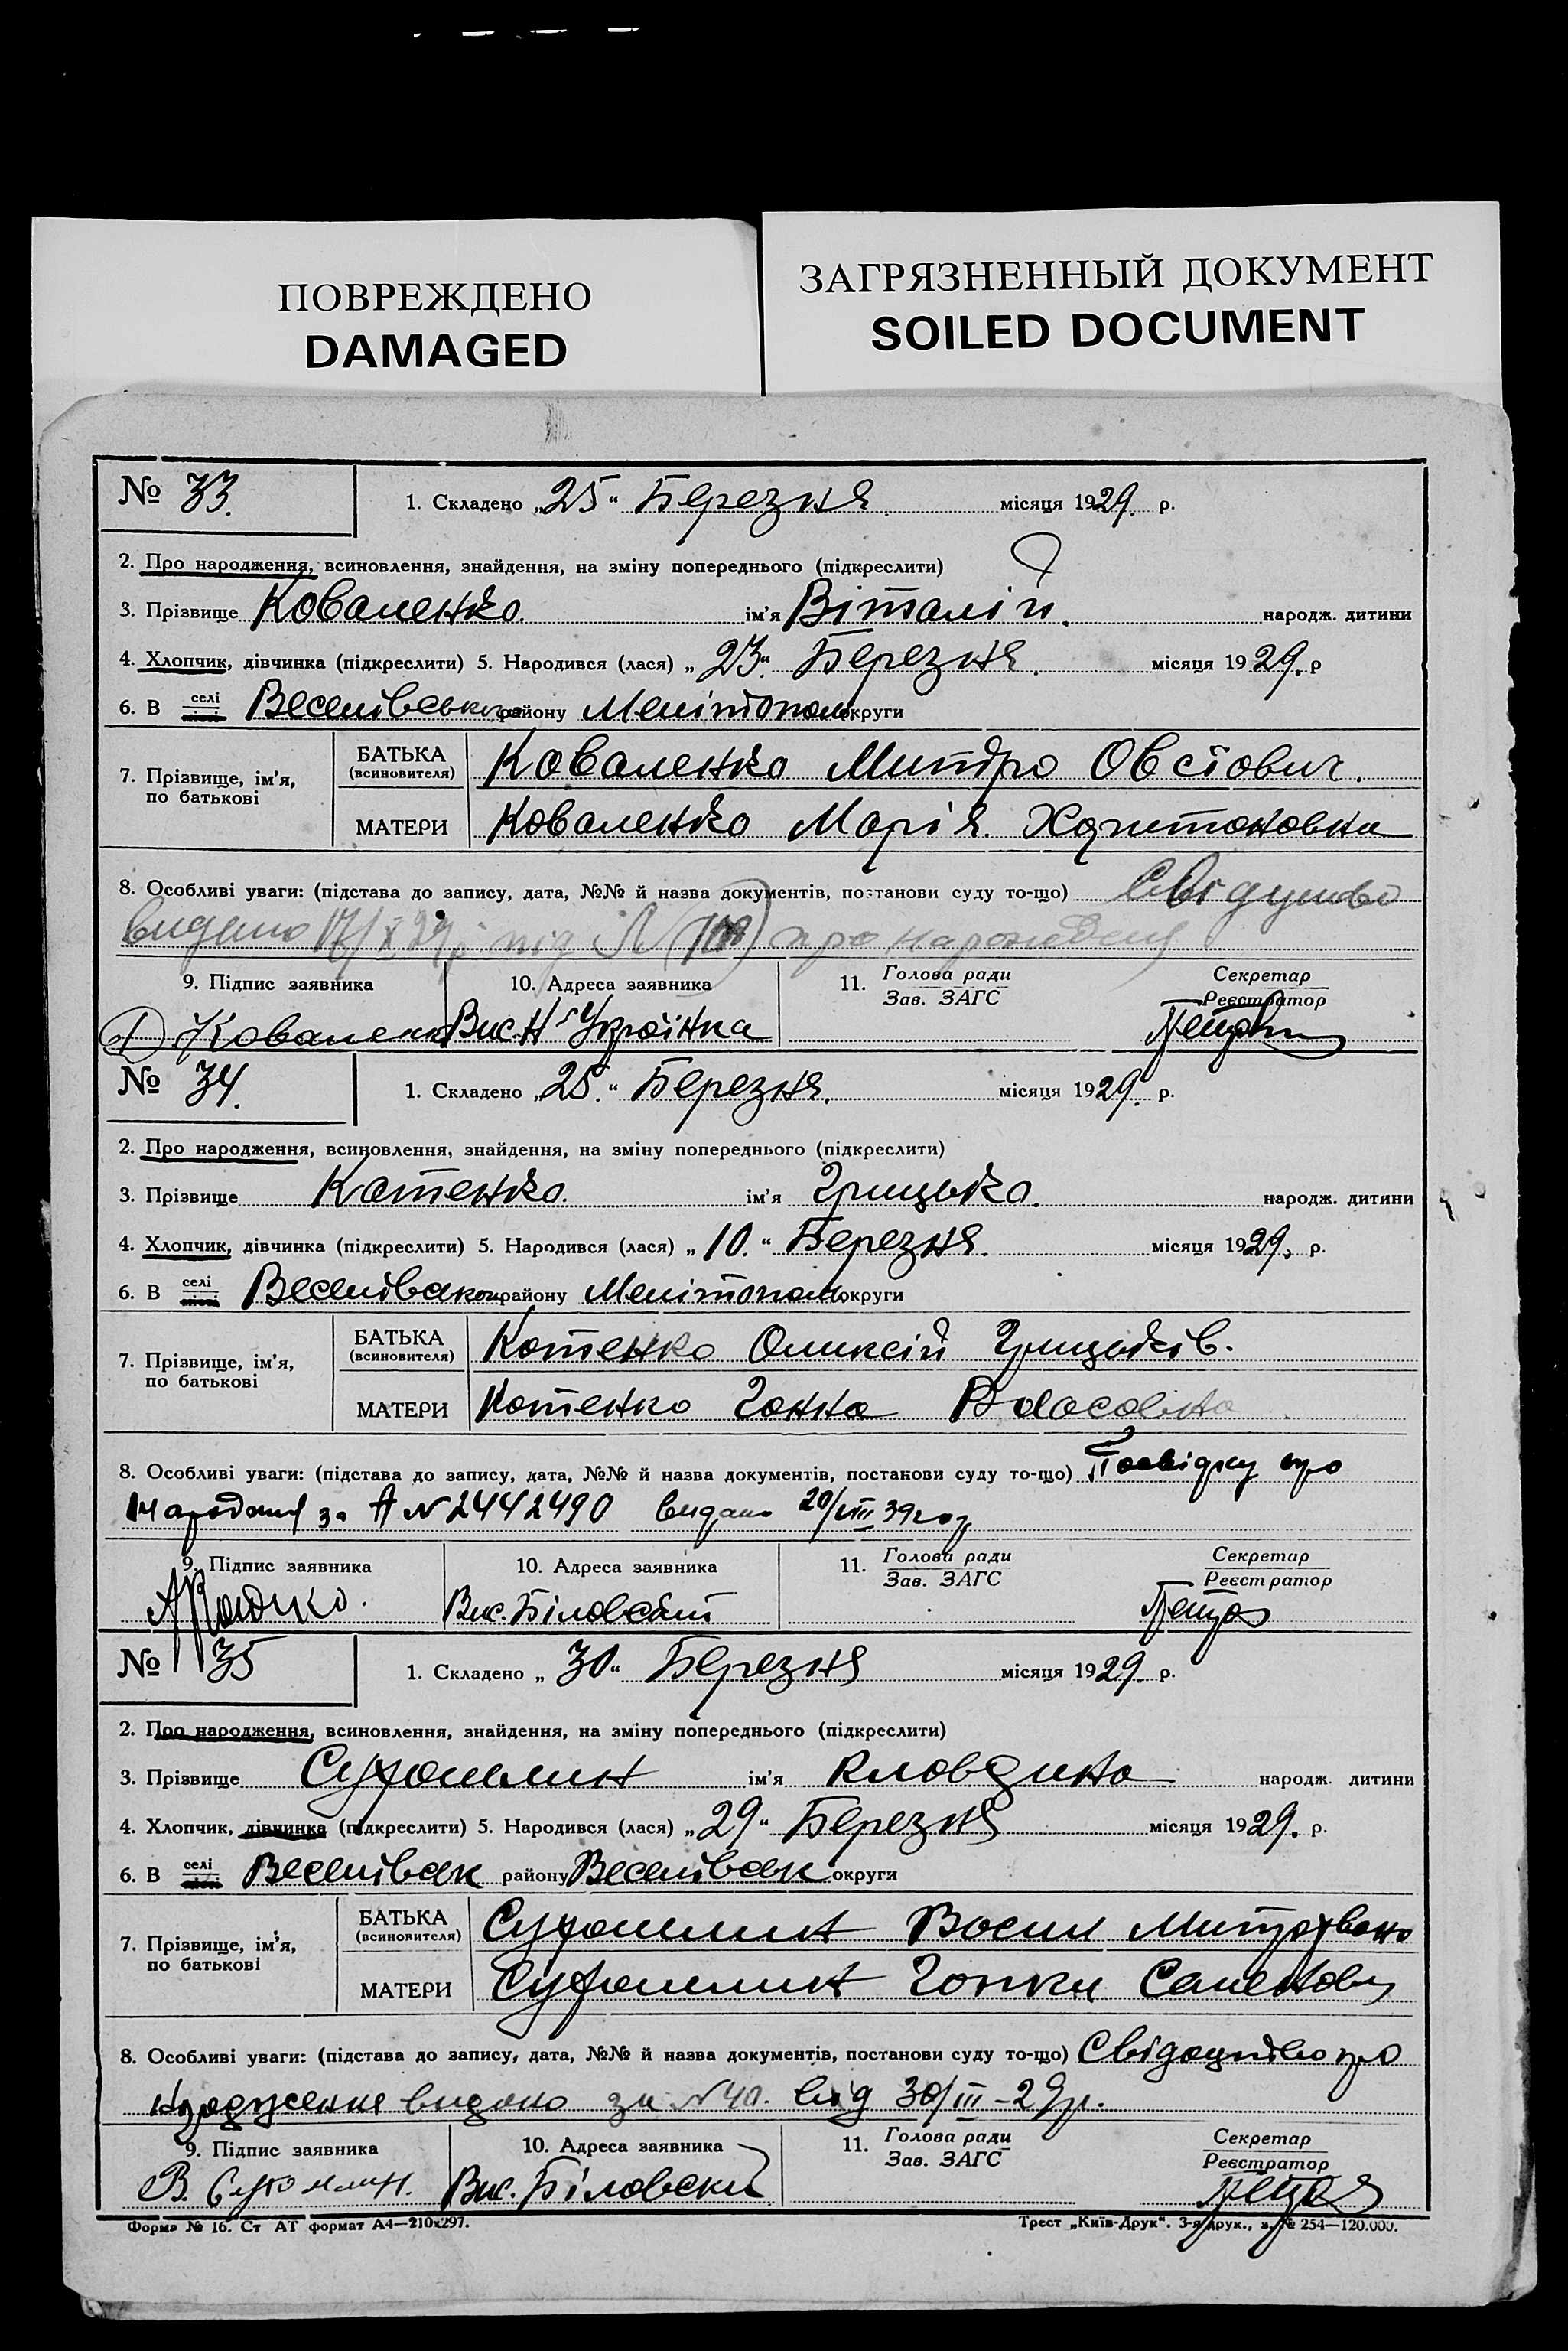 ПОВРЕЖДЕНО
DAMAGED
ЗАГРЯЗНЕННЫЙ ДОКУМЕНТ
SOILED DOCUMENT
№ 33. 1. Складено „25“ Березня. місяця 1929. р.
2. Про народження, всиновлення, знайдення, на зміну попереднього (підкреслити)
3. Прізвище Коваленко. ім’я Віталій. народж. дитини
4. Хлопчик, дівчинка (підкреслити) 5. Народився (лася) „23“ Березня. місяця 1929. р
6. В селі Веселівського району Мелітополь округи
7. Прізвище, ім’я, по батькові
БАТЬКА (всиновителя) Коваленко Митро Овсіович.
МАТЕРИ Коваленко Марія Харитоновна
8. Особливі уваги: (підстава до запису, дата, №№ й назва документів, постанови суду то-що)
видано про народження
9. Підпис заявника 10. Адреса заявника 11. Голова ради Секретар
Зав. ЗАГС Реєстратор
Коваленко Вис. Н Українка
№ 34. 1. Складено „25.“ Березня. місяця 1929. р.
2. Про народження, всиновлення, знайдення, на зміну попереднього (підкреслити)
3. Прізвище Котенко. ім’я Грицько. народж. дитини
4. Хлопчик, дівчинка (підкреслити) 5. Народився (лася) „10.“ Березня. місяця 1929. р.
6. В селі району Мелітополь округи
7. Прізвище, ім’я, по батькові
БАТЬКА (всиновителя) Котенко Оликсій Грицьків.
МАТЕРИ Котенко Ганна Власовна
8. Особливі уваги: (підстава до запису, дата, №№ й назва документів, постанови суду то-що) Посвідку про
за А № 2442490 видано 20/VIII 39 год
9. Підпис заявника 10. Адреса заявника 11. Голова ради Секретар
Зав. ЗАГС Реєстратор
Вис. Біловський
№ 35 1. Складено „30“ Березня місяця 1929. р.
2. Про народження, всиновлення, знайдення, на зміну попереднього (підкреслити)
3. Прізвище Сухомлин ім’я Клавдина народж. дитини
4. Хлопчик, дівчинка (підкреслити) 5. Народився (лася) „29“ Березня місяця 1929. р.
6. В селі Веселівськ району Веселівськ округи
7. Прізвище, ім’я, по батькові
БАТЬКА (всиновителя) Сухомлин Восил
МАТЕРИ Сухомлин
8. Особливі уваги: (підстава до запису, дата, №№ й назва документів, постанови суду то-що) Свідоцтво про
народження видано за №40. від 30/III-29р.
9. Підпис заявника 10. Адреса заявника 11. Голова ради Секретар
Зав. ЗАГС Реєстратор
В. Сухомлин. Вис. Біловский
Форма № 16. Ст АТ формат А4—210х297. Трест „Київ-Друк“. 3-я друк., з. № 254—120.000.